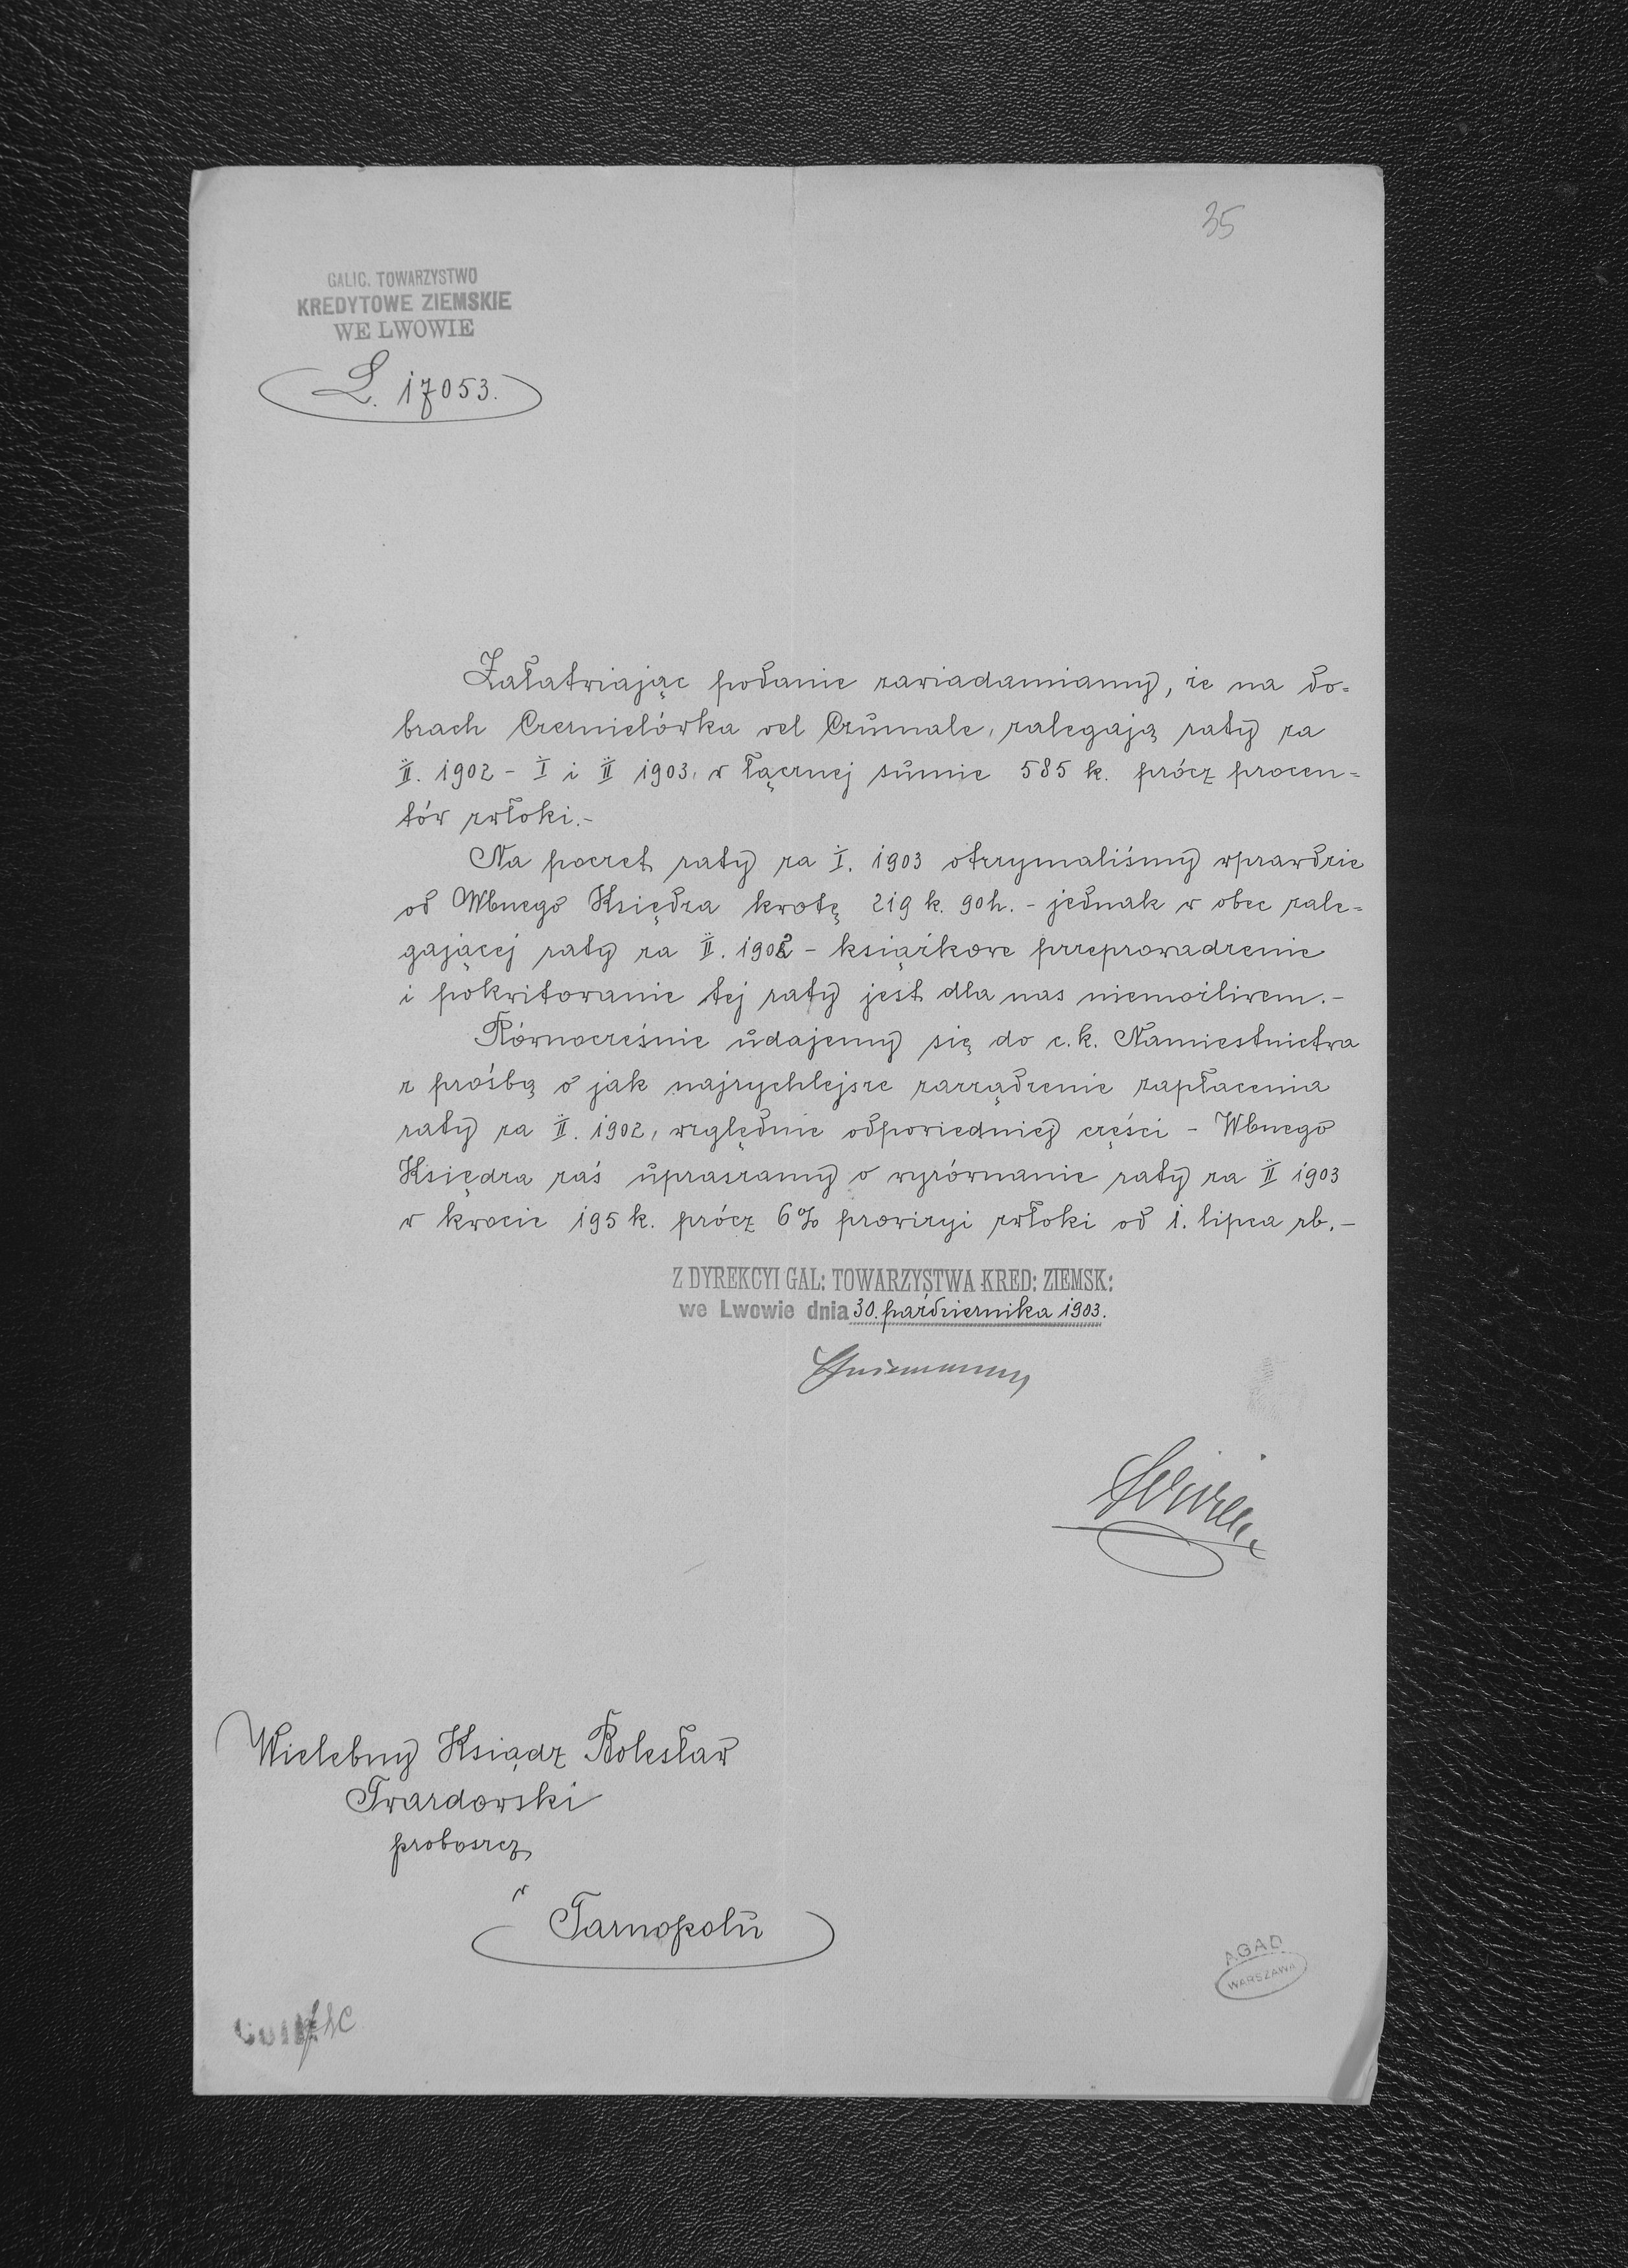 35
GALIC. TOWARZYSTWO
KREDYTOWE ZIEMSKIE
WE LWOWIE
L. 17053.
Załatwiając podanie zawiadamiamy, że na do=
brach Czernielówka vel Czumale, zalegają raty za
II. 1902 - I i II 1903, w łącznej sumie 585 k. prócz procen=
tów zwłoki.-
Na poczet raty za I. 1903 otrzymaliśmy wprawdzie
od Wbnego Księdza kwotę 219 k. 90h. - jednak w obec zale=
gającej raty za II. 1902 - książkowe przeprowadzenie
i pokwitowanie tej raty jest dla nas niemożliwem.-
Równocześnie udajemy się do c.k. Namiestnictwa
z prośbą o jak najrychlejsze zarządzenie zapłacenia
raty za II. 1902, względnie odpowiedniej części - Wbnego
Księdza zaś upraszamy o wyrównanie raty za II 1903
w kwocie 195 k. prócz 6% prowizyi zwłoki od 1. lipca rb.-
Z DYREKCYI GAL: TOWARZYSTWA KRED: ZIEMSK:
we Lwowie dnia 30. października 1903.
Wielebny Ksiądz Bolesław
Twardowski
proboszcz
w
Tarnopolu
AGAD
WARSZAWA